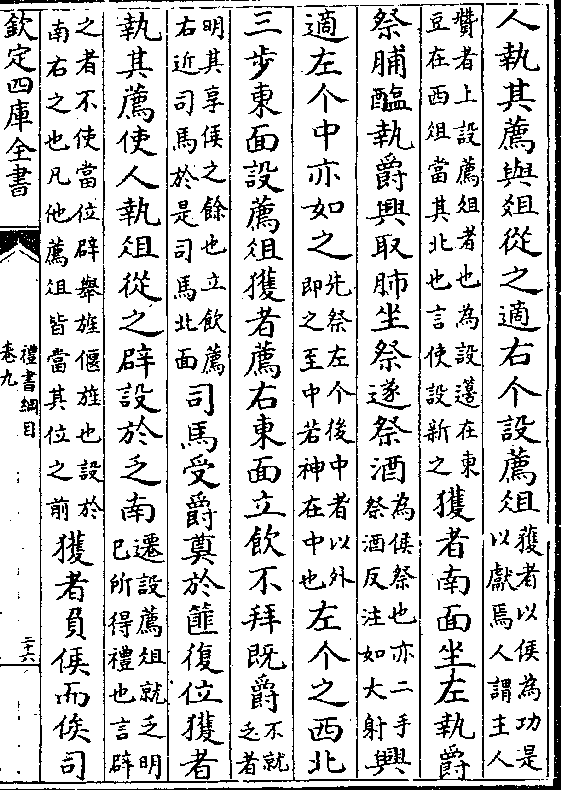 人執其薦與俎從之適右个設薦俎獲者以侯為功是以獻焉人謂主人
贊者上設薦俎者也為設籩在東豆在西俎當其北也言使設新之獲者南面坐左執爵
祭脯醢執爵興取肺坐祭遂祭酒為侯祭也亦二手祭酒反注如大射興
適左个中亦如之先祭左个後中者以外即之至中若神在中也左个之西北
三步東面設薦俎獲者薦右東面立飲不拜既爵不就乏者
明其享侯之餘也立飲薦右近司馬於是司馬北面司馬受爵奠於篚復位獲者
執其薦使人執俎從之辟設於乏南遷設薦俎就乏明已所得禮也言辟
之者不使當位辟舉旌偃旌也設於南右之也凡他薦俎皆當其位之前獲者負侯而俟司
欽定四庫全書
禮書綱目
卷九
二十六